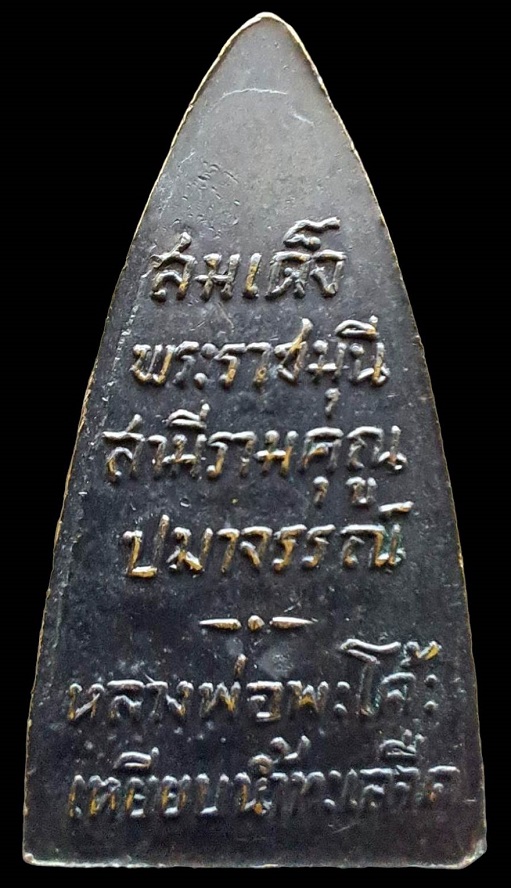 สมเด็จ
พระราชมุนี
สามีรามคุณู
ปมาจรรณ์
หลวงพ่อพะโค๊ะ
เหยียบน้ำทะเลจืด